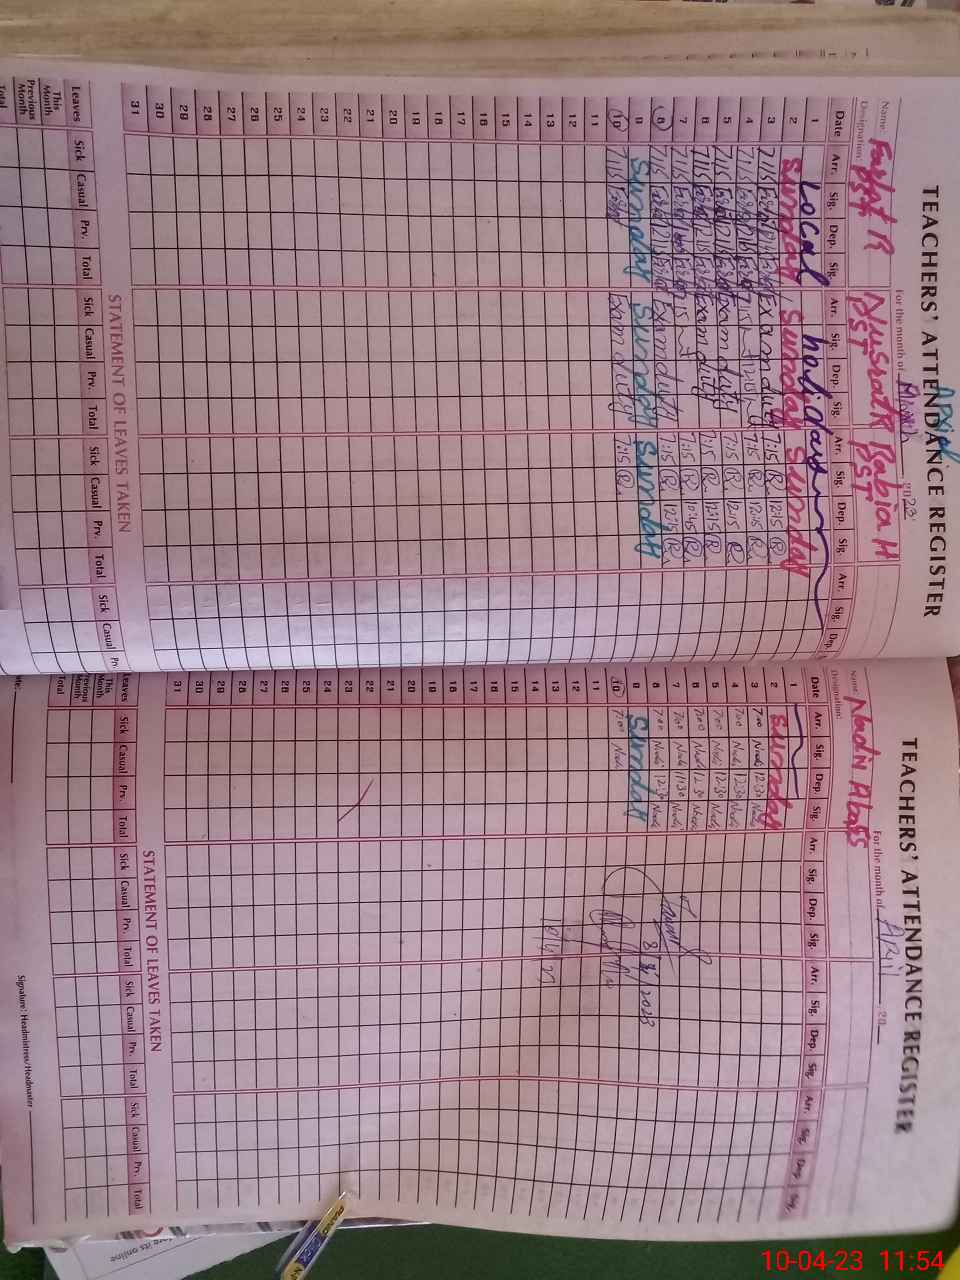 TEACHERS' ATTENDANCE REGISTER
April
For the month of March 2023
Name: R Nusrath Rabia H
Designation: PST PST
Date Arr. Sig. Dep. Sig. Arr. Sig. Dep. Sig. Arr. Sig. Dep. Sig. Arr. Sig. Dep.
1 Local holiday
2 Sunday Sunday Sunday
3 7:15 Exam duty 7:15 R. 12:15 R
4 7:15 7:15 12:15 7:15 R. 12:15 R.
5 7:15 Exam duty 7:15 R. 12:15 R.
6 7:15 12:15 Exam duty 7:15 R. 12:15 R
7 7:15 7:15 7:15 R. 10:45 R.
8 7:15 12:15 Exam duty 7:15 R. 12:15 R.
9 Sunday Sunday Sunday
10 7:15 Exam duty 7:15 R.
11
12
13
14
15
16
17
18
19
20
21
22
23
24
25
26
27
28
29
30
31
STATEMENT OF LEAVES TAKEN
Leaves Sick Casual Prv. Total Sick Casual Prv. Total Sick Casual Prv. Total Sick Casual Prv.
This Month
Previous Month
Total
TEACHERS' ATTENDANCE REGISTER
For the month of APril 20
Name: Nadir Abass
Designation:
Date Arr. Sig. Dep. Sig. Arr. Sig. Dep. Sig. Arr. Sig. Dep. Sig. Arr. Sig. Dep. Sig.
1
2 Sunday
3 7:00 Nadi 12:30 Nadi
4 7:00 Nadi 12:30 Nadi
5 7:00 Nadi 12:30 Nadi
6 7:00 Nadi 12:30 Nadi
7 7:00 Nadi 11:30 Nadi
8 7:00 Nadi 12:30 Nadi
8/4/2023
9 Sunday
10 7:00 Nadi
11
12
13
14
15
16
17
18
19
20
21
22
23
24
25
26
27
28
29
30
31
STATEMENT OF LEAVES TAKEN
Leaves Sick Casual Prv. Total Sick Casual Prv. Total Sick Casual Prv. Total Sick Casual Prv. Total
This Month
Previous Month
Total
Signature: Headmistress/Headmaster
its online
10-04-23 11:54